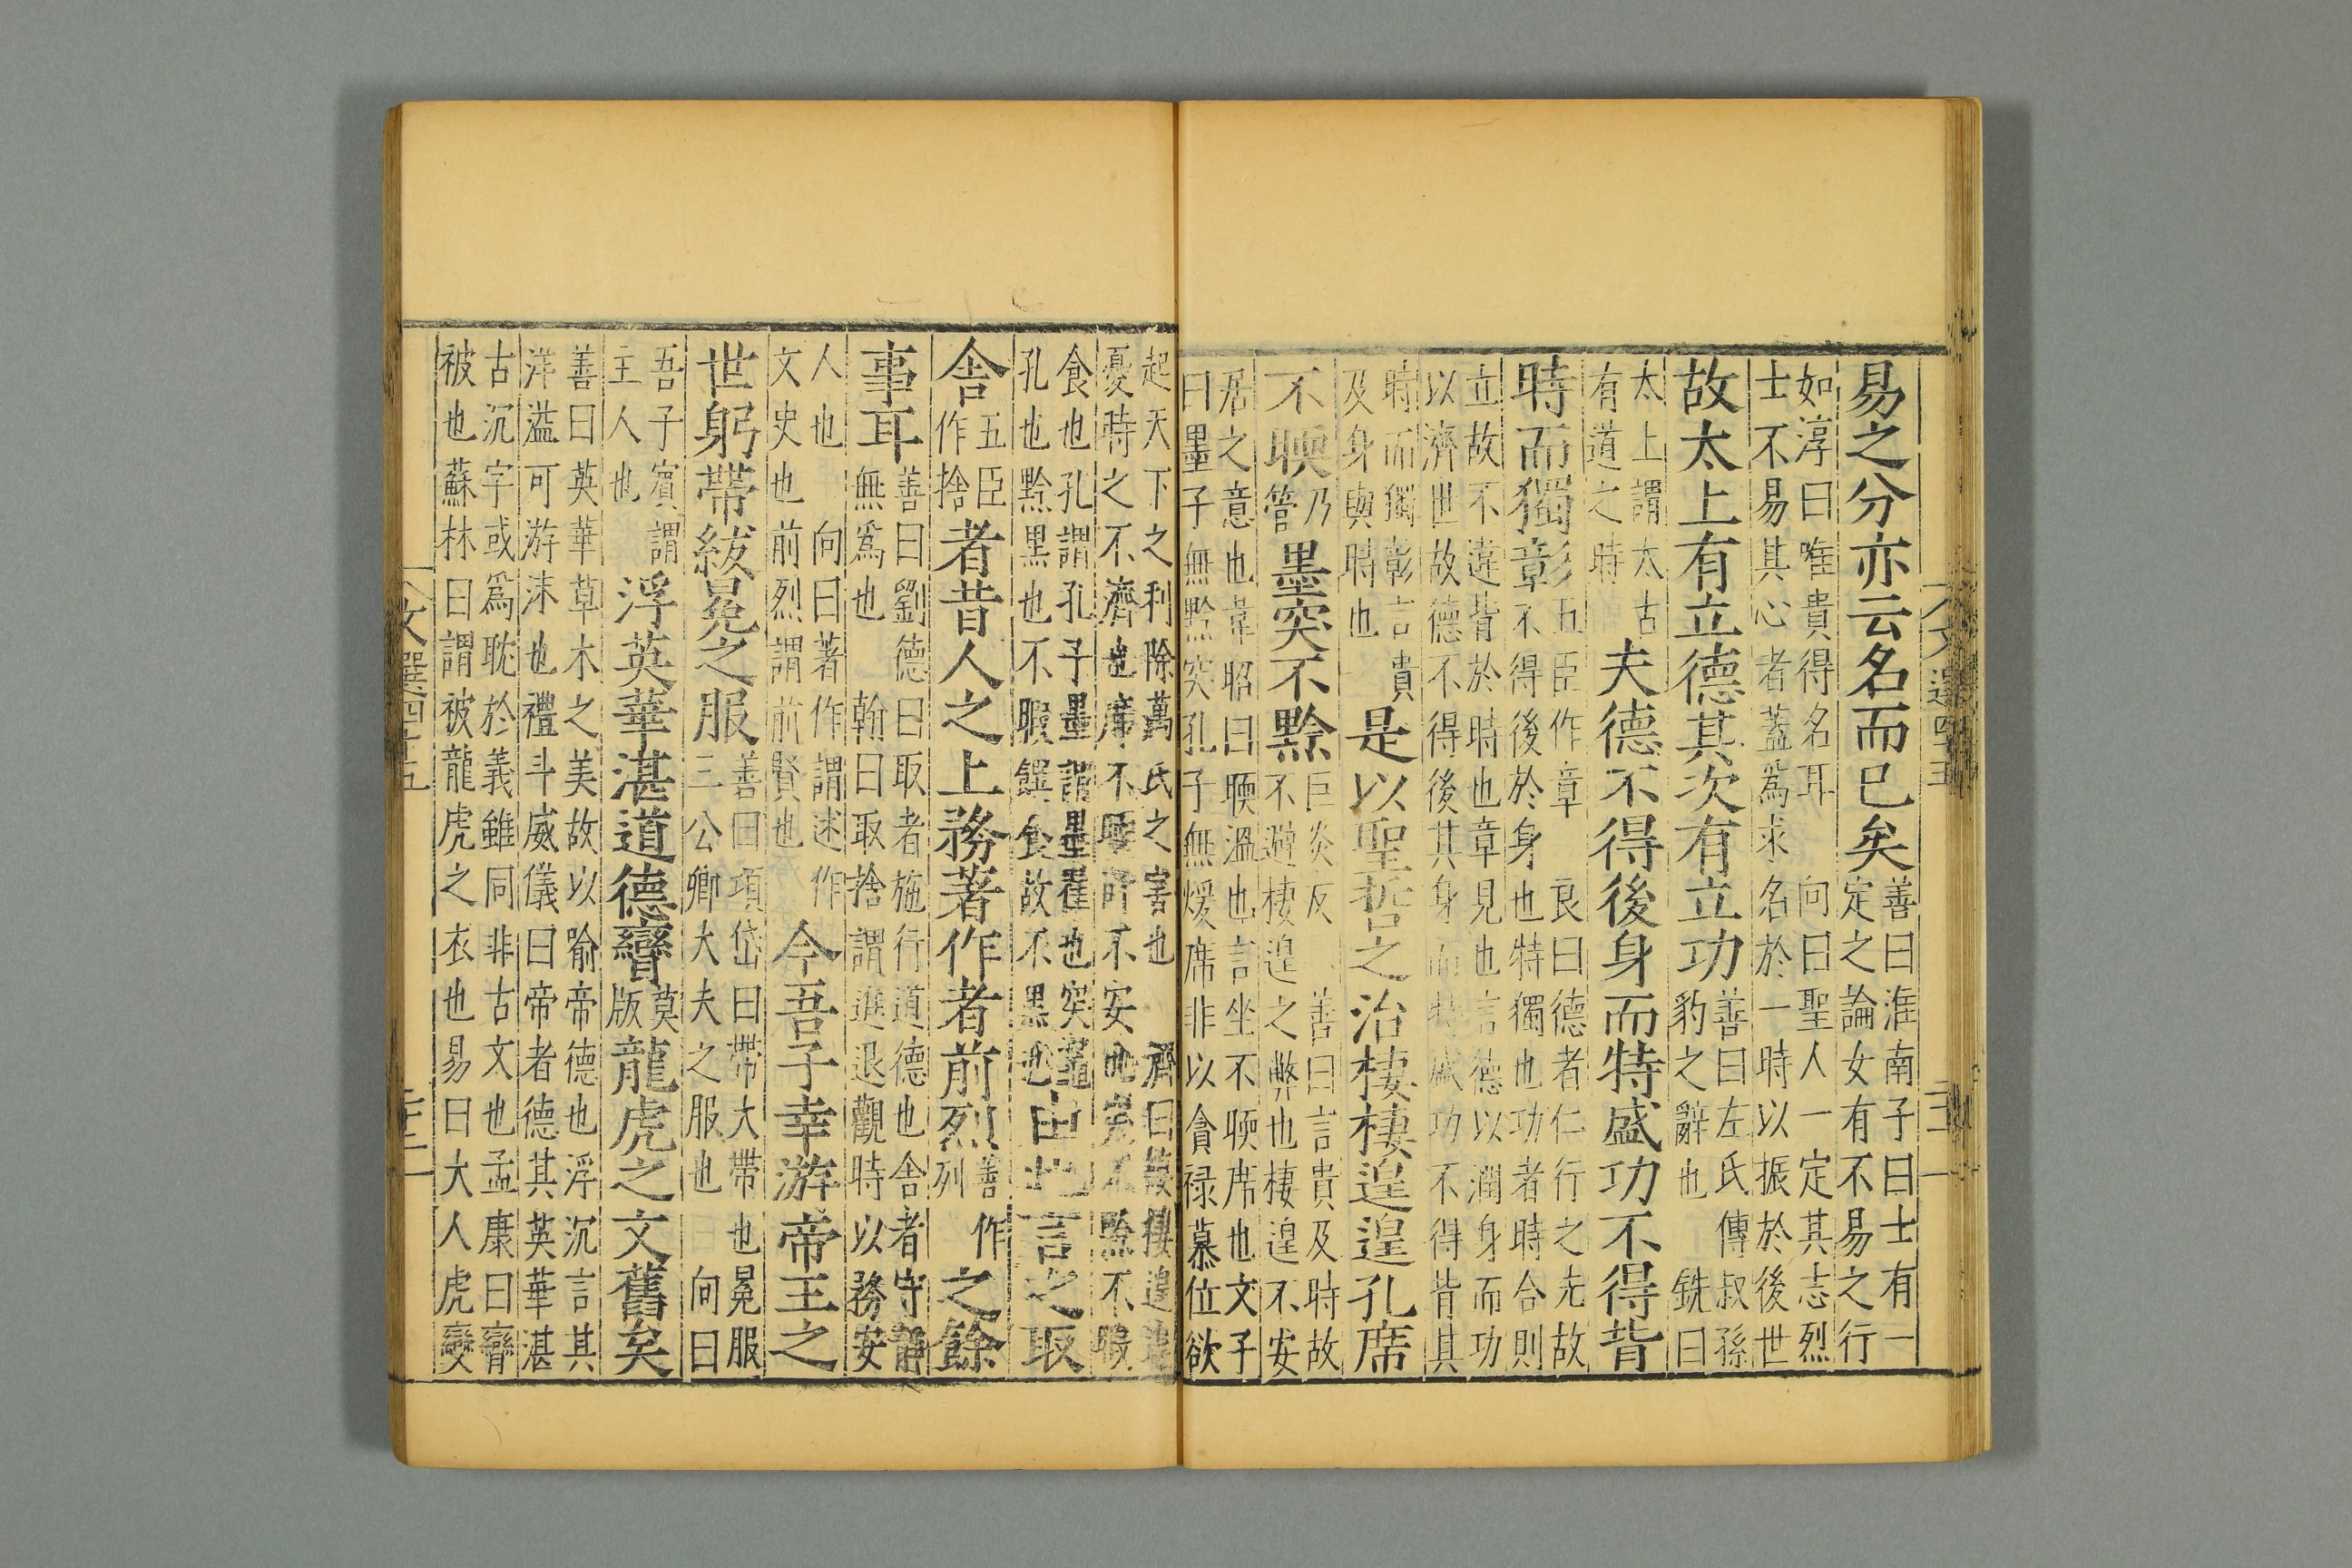 易之分亦云名而已矣善曰淮南子曰士有一
定之論女有不易之行
如淳曰唯貴得名耳 向曰聖人一定其志烈
士不易其心者蓋為求名於一時以振於後世
故太上有立德其次有立功善曰左氏傳叔孫
豹之辭也 銑曰
太上謂太古
有道之時夫德不得後身而特盛功不得背
時而獨彰五臣作章 良曰德者仁行之先故
不得後於身也特獨也功者時合則
立故不違背於時也章見也言德以潤身而功
以濟世故德不得後其身而特盛功不得背其
時而獨彰言貴
及身與時也是以聖哲之治棲棲遑遑孔席
不㬉乃管墨突不黔巨炎反 善曰言貴及時故
不避棲遑之弊也棲遑不安
居之意也韋昭曰㬉溫也言坐不㬉席也文子
曰墨子無黔突孔子無煖席非以貪祿慕位欲
起天下之利除萬民之害也 濟曰棲棲遑遑
憂時之不濟也席不㬉所不安也突不黔不暇
食也孔謂孔子墨謂墨翟也突竈
孔也黔黑也不暇饌食故不黑也由此言之取
舍五臣作捨者昔人之上務著作者前烈善作列之餘
事耳善曰劉德曰取者施行道德也舍者守靜
無為也 翰曰取捨謂進退觀時以務安
人也 向曰著作謂述作
文史也前烈謂前賢也今吾子幸游帝王之
世躬帶紱冕之服善曰項岱曰帶大帶也冕服
三公卿大夫之服也 向曰
吾子賓謂
主人也浮英華湛道德㜝莫版龍虎之文舊矣
善曰英華草木之美故以喻帝德也浮沉言其
洋溢可游沫也禮斗威儀曰帝者德其英華湛
古沉字或為耽於義雖同非古文也孟康曰㜝
被也蘇林曰謂被龍虎之衣也易曰大人虎變
文選四十五
二十二